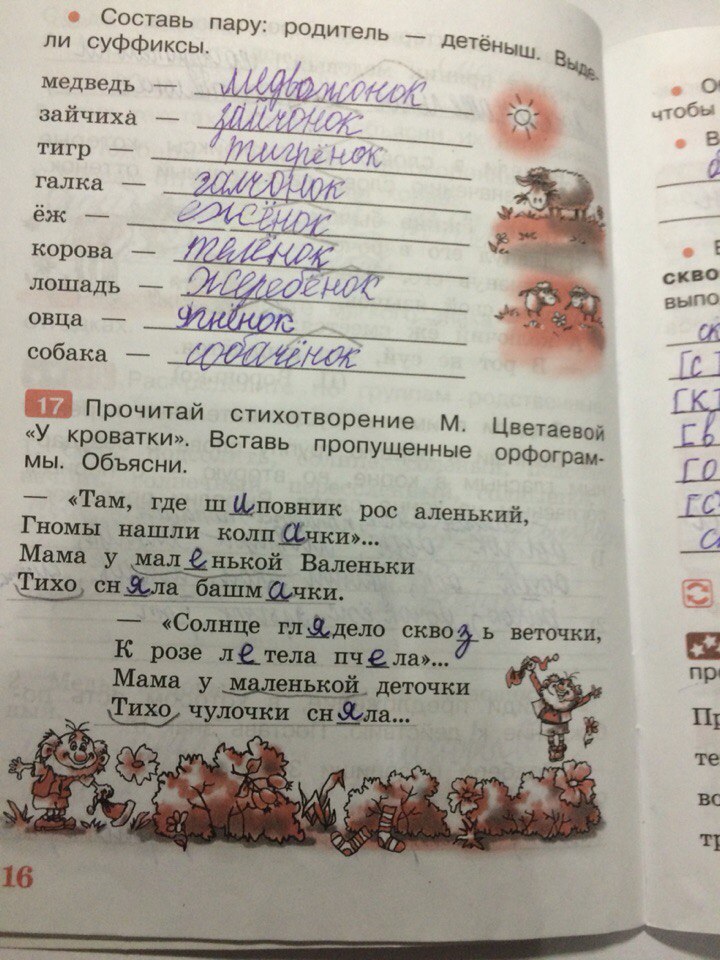 • Составь пару: родитель — детёныш. Выде-
ли суффиксы.
медведь — медвежонок
зайчиха — зайчонок
тигр — тигрёнок
галка — галчонок
ёж — ежёнок
корова — телёнок
лошадь — жеребёнок
овца — ягнёнок
собака — собачёнок
17 Прочитай стихотворение М. Цветаевой
«У кроватки». Вставь пропущенные орфограм-
мы. Объясни.
— «Там, где шиповник рос аленький,
Гномы нашли колпачки»...
Мама у маленькой Валеньки
Тихо сняла башмачки.
— «Солнце глядело сквозь веточки,
К розе летела пчела»...
Мама у маленькой деточки
Тихо чулочки сняла...
16
• Об
чтобы
• В
• В
скво
выпо
ск
[с]
[к]
[в
[о
[с
с
про
Пр
те
во
тр